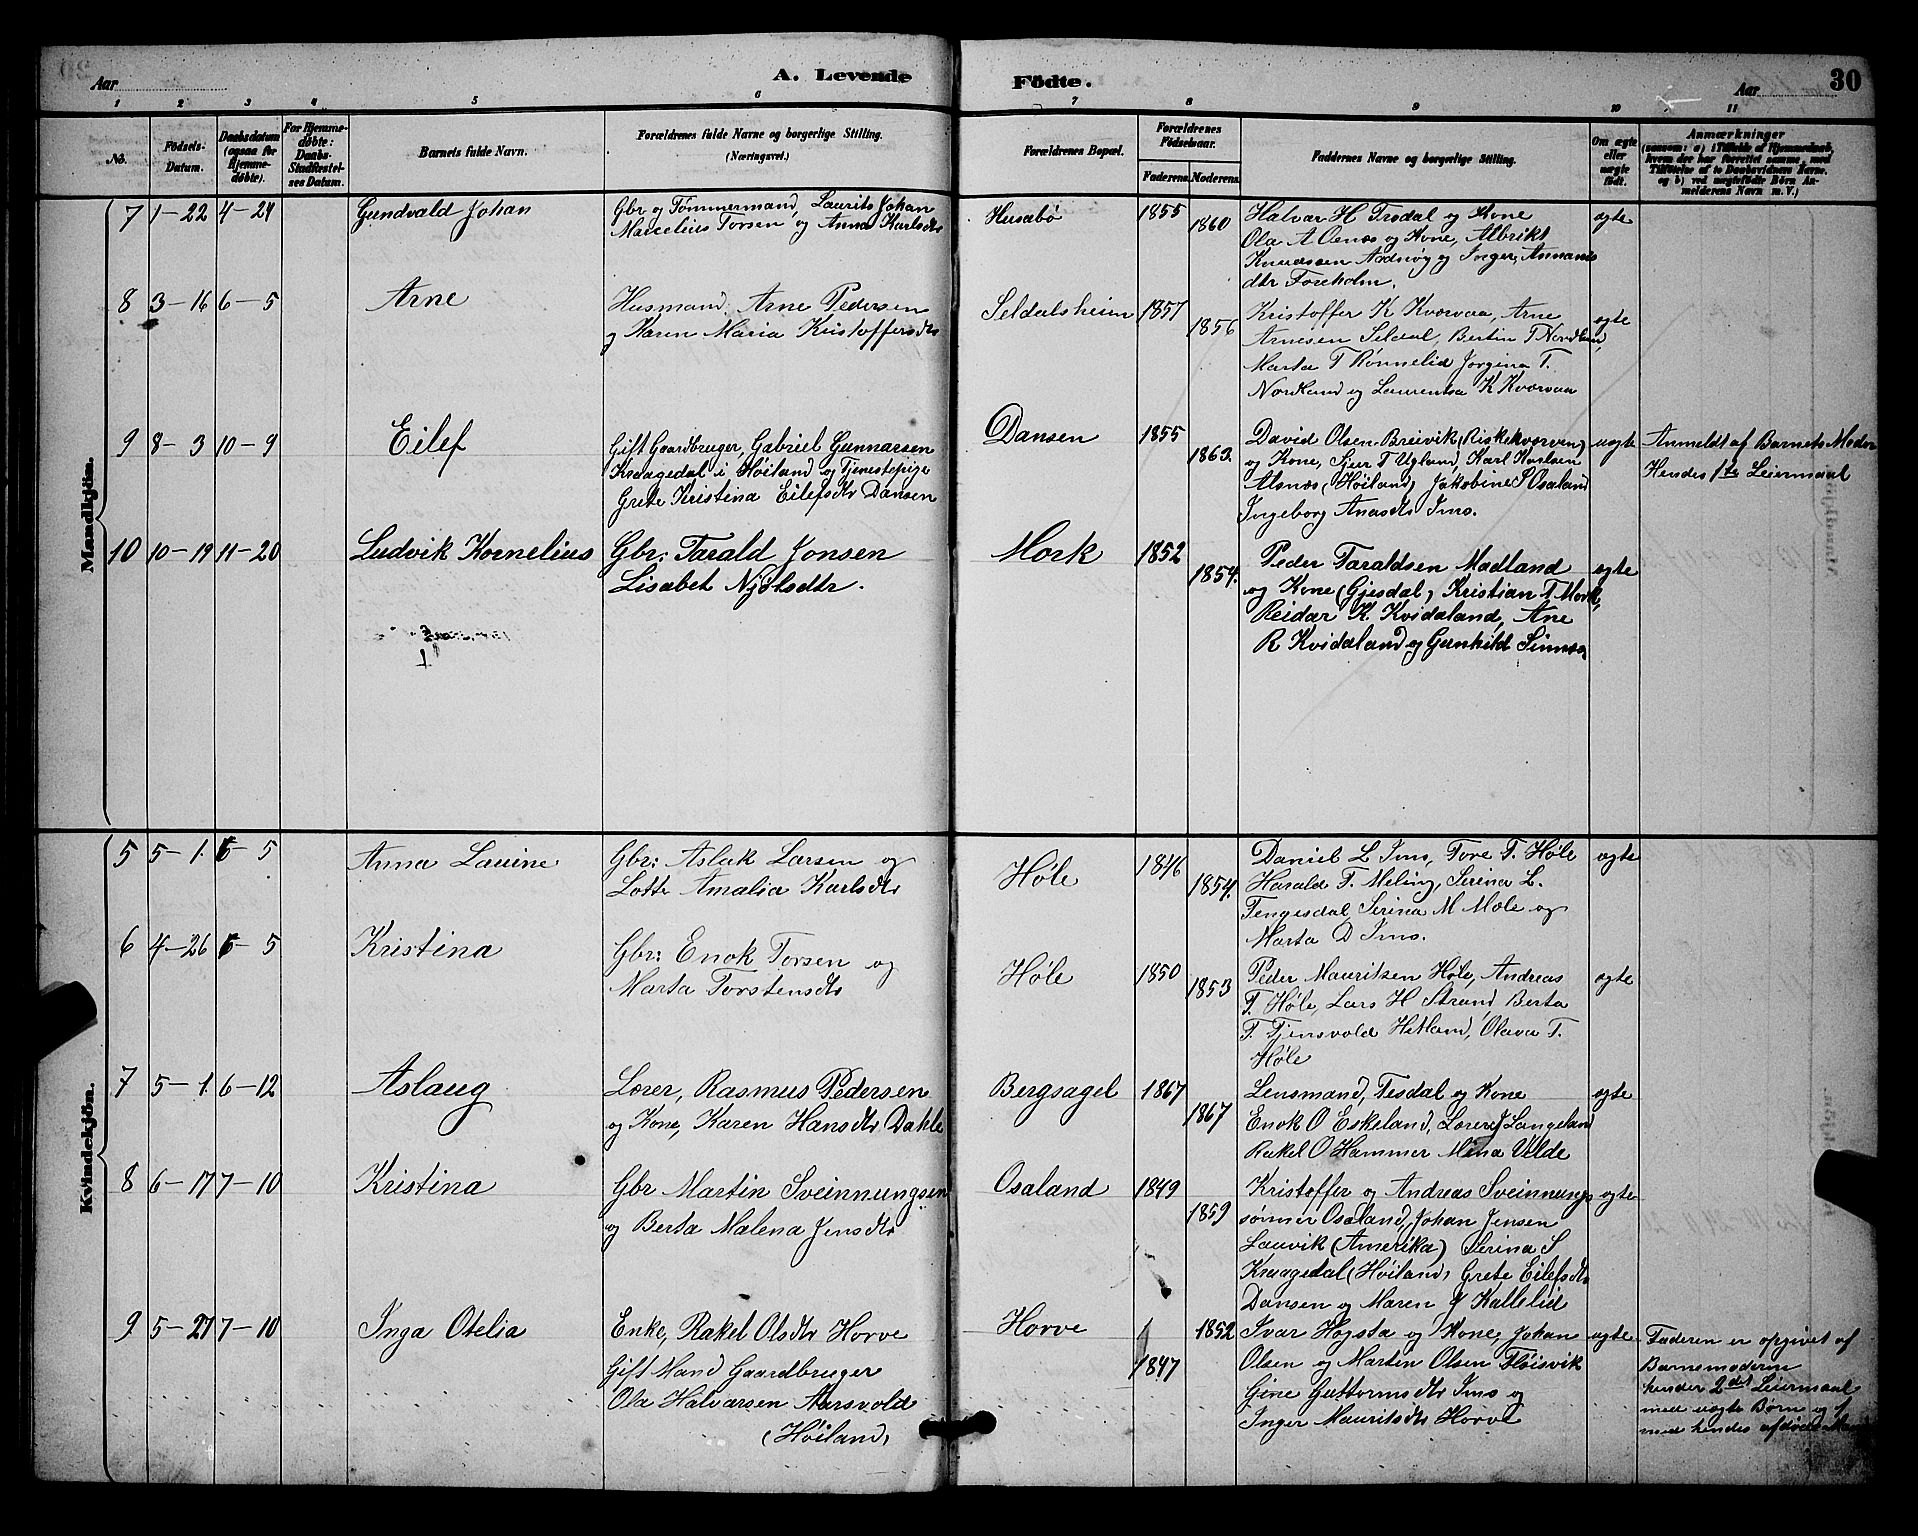 A. Levende Födte.
30
Aar
Aar
1 2 3 4 5 6 7 8 9 10 11
No.
Födsels-
Datum.
Daabsdatum
(ogsaa for
Hjemme-
døbte).
For Hjemme-
døbte:
Daabs-
Stadfæstel-
ses Datum.
Barnets fulde Navn.
Forældrenes fulde Navne og borgerlige Stilling.
(Næringsvei.)
Forældrenes Bopæl.
Forældrenes
Födselsaar.
Faderens. Moderens.
Faddernes Navne og borgerlige Stilling.
Om ægte
eller
uægte
født.
Anmærkninger
(saasom: a) i Tilfælde af Hjemmedaab,
hvem der har forrettet samme, med
Tilføielse af to Daabsvidners Navne,
og b) ved uægtefødte Börn An-
melderens Navn m. V.)
Mandkjön.
7 1-22 4-24 Gundvald Johan
Gbr og Tømmermand, Laurits Johan
Marcelius Torsen og Anna Karlsdtr
Husabø 1855 1860
Halvar H Trodal og Kone
Ola A Oenæs og Kone, Albrikt
Knudssen Adsnøy og Inger Annanis
dtr Foreholm.
ægte
8 3-16 6-5 Arne
Husmand: Arne Pedersen
og Karen Maria Kristoffersdtr
Seldalsheim 1857 1856
Kristoffer K Kværvaa, Arne
Arnesen Seldal, Bertin T Nordland,
Marta T Rønnelid Jorgina T.
Nordland og Laurentsa K Kværvaa
ægte
9 8-3 10-9 Eilef
Gift Gaardbruger, Gabriel Gunnarsen
Kraagedal i Høiland og Tjenestepige
Grete Kristina Eilefsdtr Dansen
Dansen 1855 1863.
David Olsen Breivik (Riskekværven)
og Kone, Sjur T Ugland, Karl Karlsen
Alsnæs (Høiland) Jakobine S Osaland
Ingeborg Anasdtr Ims.
uægte
Anmeldt af Barnets Moder
Hendes 1te Leiermaal
10 10-19 11-20 Ludvik Kornelius
Gbr: Tarald Jonsen
Lisabet Njølsdtr.
Mork 1852 1854.
Peder Taraldsen Madland
og Kone (Gjesdal, Kristian T Mork,
Reidar K. Kvidaland, Ane
R Kvidaland og Gunhild Simnes
ægte
Kvindekjön.
5 5-1. 6-5 Anna Lauine
Gbr: Aslak Larsen og
Lotte Amalia Karlsdtr
Høle 1846 1854.
Daniel L Ims, Tore T. Høle
Harald T. Meling, Serina L.
Tengesdal, Serina M Mæle og
Marta D Ims.
ægte
6 4-26 6-5 Kristina
Gbr: Enok Torsen og
Marta Torstensdtr
Høle 1850 1853
Peder Mauritzen Høle, Andreas
T. Høle, Lars H Strand Berta
T. Tjensvold Hetland, Olava T.
Høle
ægte
7 5-1. 6-12 Aslaug
Lærer, Rasmus Pedersen
og Kone, Karen Hansdtr Dahle
Bergsagel 1867 1867
Lensmand, Tesdal og Kone
Enok O Eskeland, Lærer J Langeland
Rakel O Hammer Mina Velde
ægte
8 6-17 7-10 Kristina
Gbr Martin Sveinnungsen
og Berta Malena Jensdtr
Osaland 1849 1859
Kristoffer og Andreas Sveinnungs
sønner Osaland, Johan Jensen
Lauvik (Amerika) Serina S
Kraagedal (Høiland, Grete Eilefsdtr
Dansen og Maren J Kallelid
ægte
9 5-27 7-10 Inga Otelia
Enke, Rakel Olsdtr Horve
Gift Mand Gaardbruger
Ola Halvarsen Aarsvold
(Høiland)
Horve 1847 1852
Ivar Høgsta og Kone, Johan
Olsen og Martin Olsen Fløisvik
Gine Guttormsdtr Ims og
Inger Mauritsdtr Horve
uægte
Faderen er opgivet af
Barnemoderen
hendes 2det Leiermaal
med uægte Børn og 1
med hendes afdøde Mand